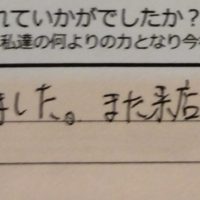 れていかがでしたか？
私達の何よりの力となり今
した。また来店